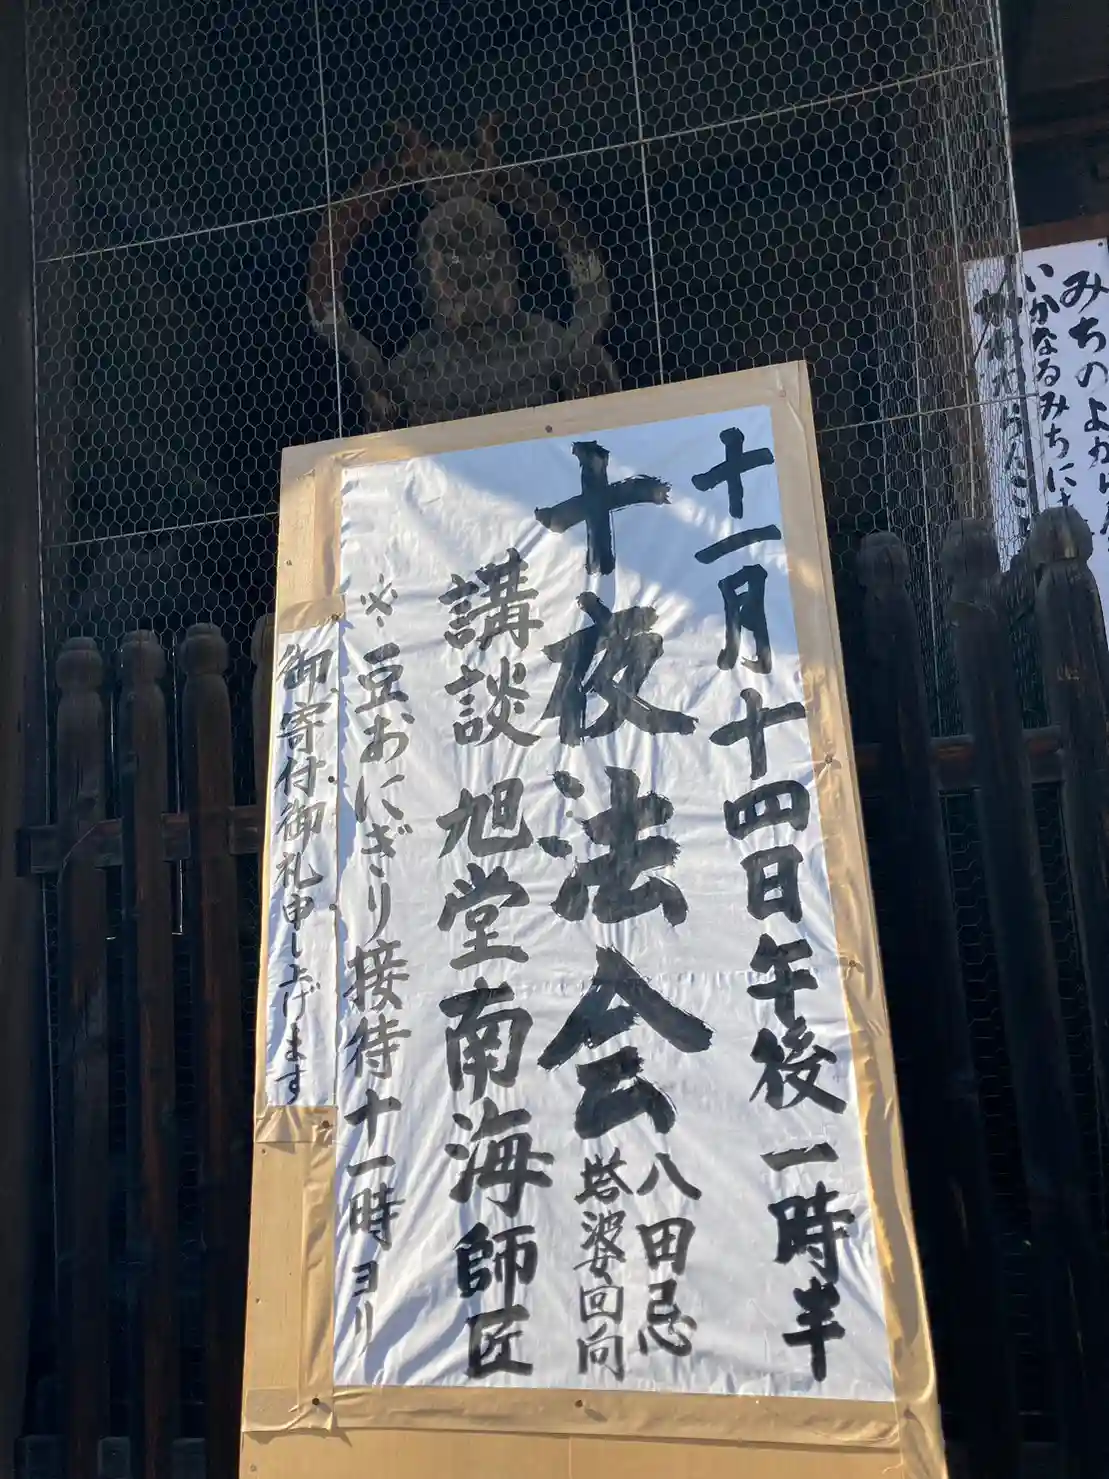 十一月十四日午後一時半
十夜法会
八田忌
塔婆回向
講談 旭堂南海師匠
※豆おにぎり接待十一時ヨリ
御寄付御礼申し上げます
みちのよか
いかなるみちに